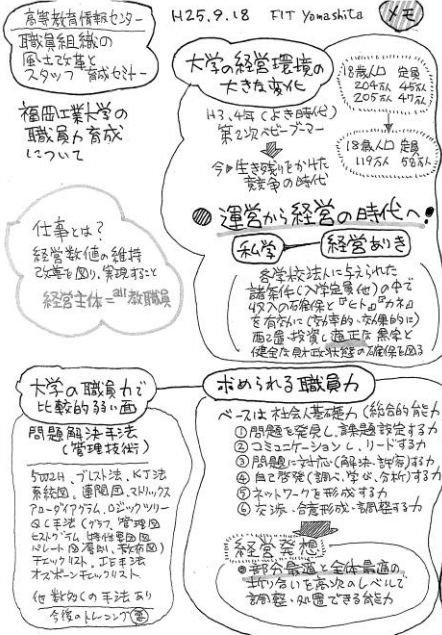 高等教育情報センター
職員組織の
風土改革と
スタッフ育成セミナー
H25.9.18 FIT Yamashita
メモ
福岡工業大学の
職員力育成
について
大学の経営環境の
大きな変化
H3,4年(よき時代)
第2次ベビーブーマー
今▶生き残りをかけた
競争の時代
18歳人口 定員
204万人 45万人
205万人 47万人
18歳人口 定員
119万人 58万人
運営から経営の時代へ!
私学 経営ありき
各学校法人に与えられた
諸条件(入学定員他)の中で
収入の確保と『ヒト』『カネ』
を有効に(効率的・効果的に)
配置・投資し適正な黒字と
健全な財政状態の確保を図る
仕事とは?
経営数値の維持
改善を図り、実現すること
経営主体=all教職員
大学の職員力で
比較的弱い面
問題解決手法
(管理技術)
5W2H、ブレスト法、KJ法
系統図、連関図、マトリックス
アローダイアグラム、ロジックツリー
QC手法(グラフ、管理図
ヒストグラム、特性要因図
パレート図、層別、散布図)
チェックリスト、IE手法
オズボーンチェックリスト
他数多くの手法あり
今後のトレーニング
求められる職員力
ベースは社会人基礎力(総合的能力
①問題を発見し、課題設定する力
②コミュニケーションし、リードする力
③問題に対応(解決・評容)する力
④自己啓発(調べ、学び、分析)する力
⑤ネットワークを形成する力
⑥交渉・合意形成・調整する力
経営発想
部分最適と全体最適の
折り合いを高次のレベルで
調整・処置できる能力